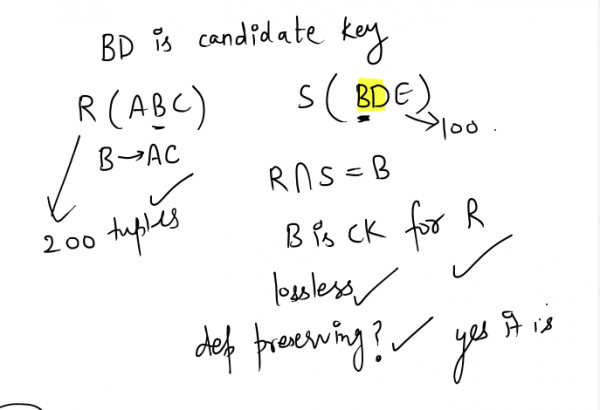 BD is candidate key
R(ABC)
S(BDE)
100.
B→AC
R∩S = B
200 tuples
B is CK for R
lossless ✓
dep preserving? ✓ yes it is